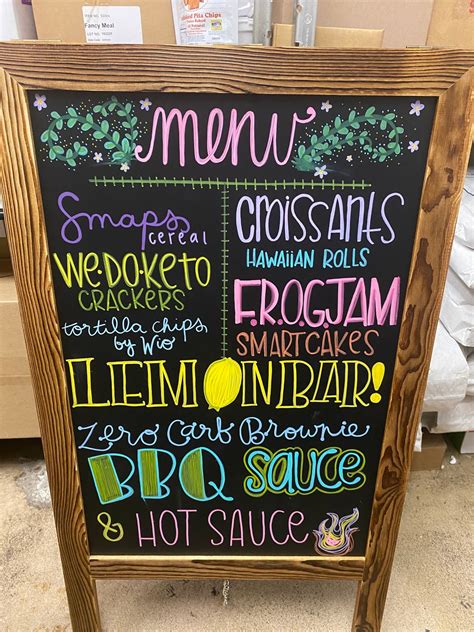 Fancy Meal
Pita Chips
menu
Smaps
cereal
We•Do•Keto
Crackers
tortilla chips
by Wio
Croissants
Hawaiian Rolls
F.R.O.G JAM
Smartcakes
LEMONBAR!
Zero Carb Brownie
BBQ Sauce
& HOT SAUCE